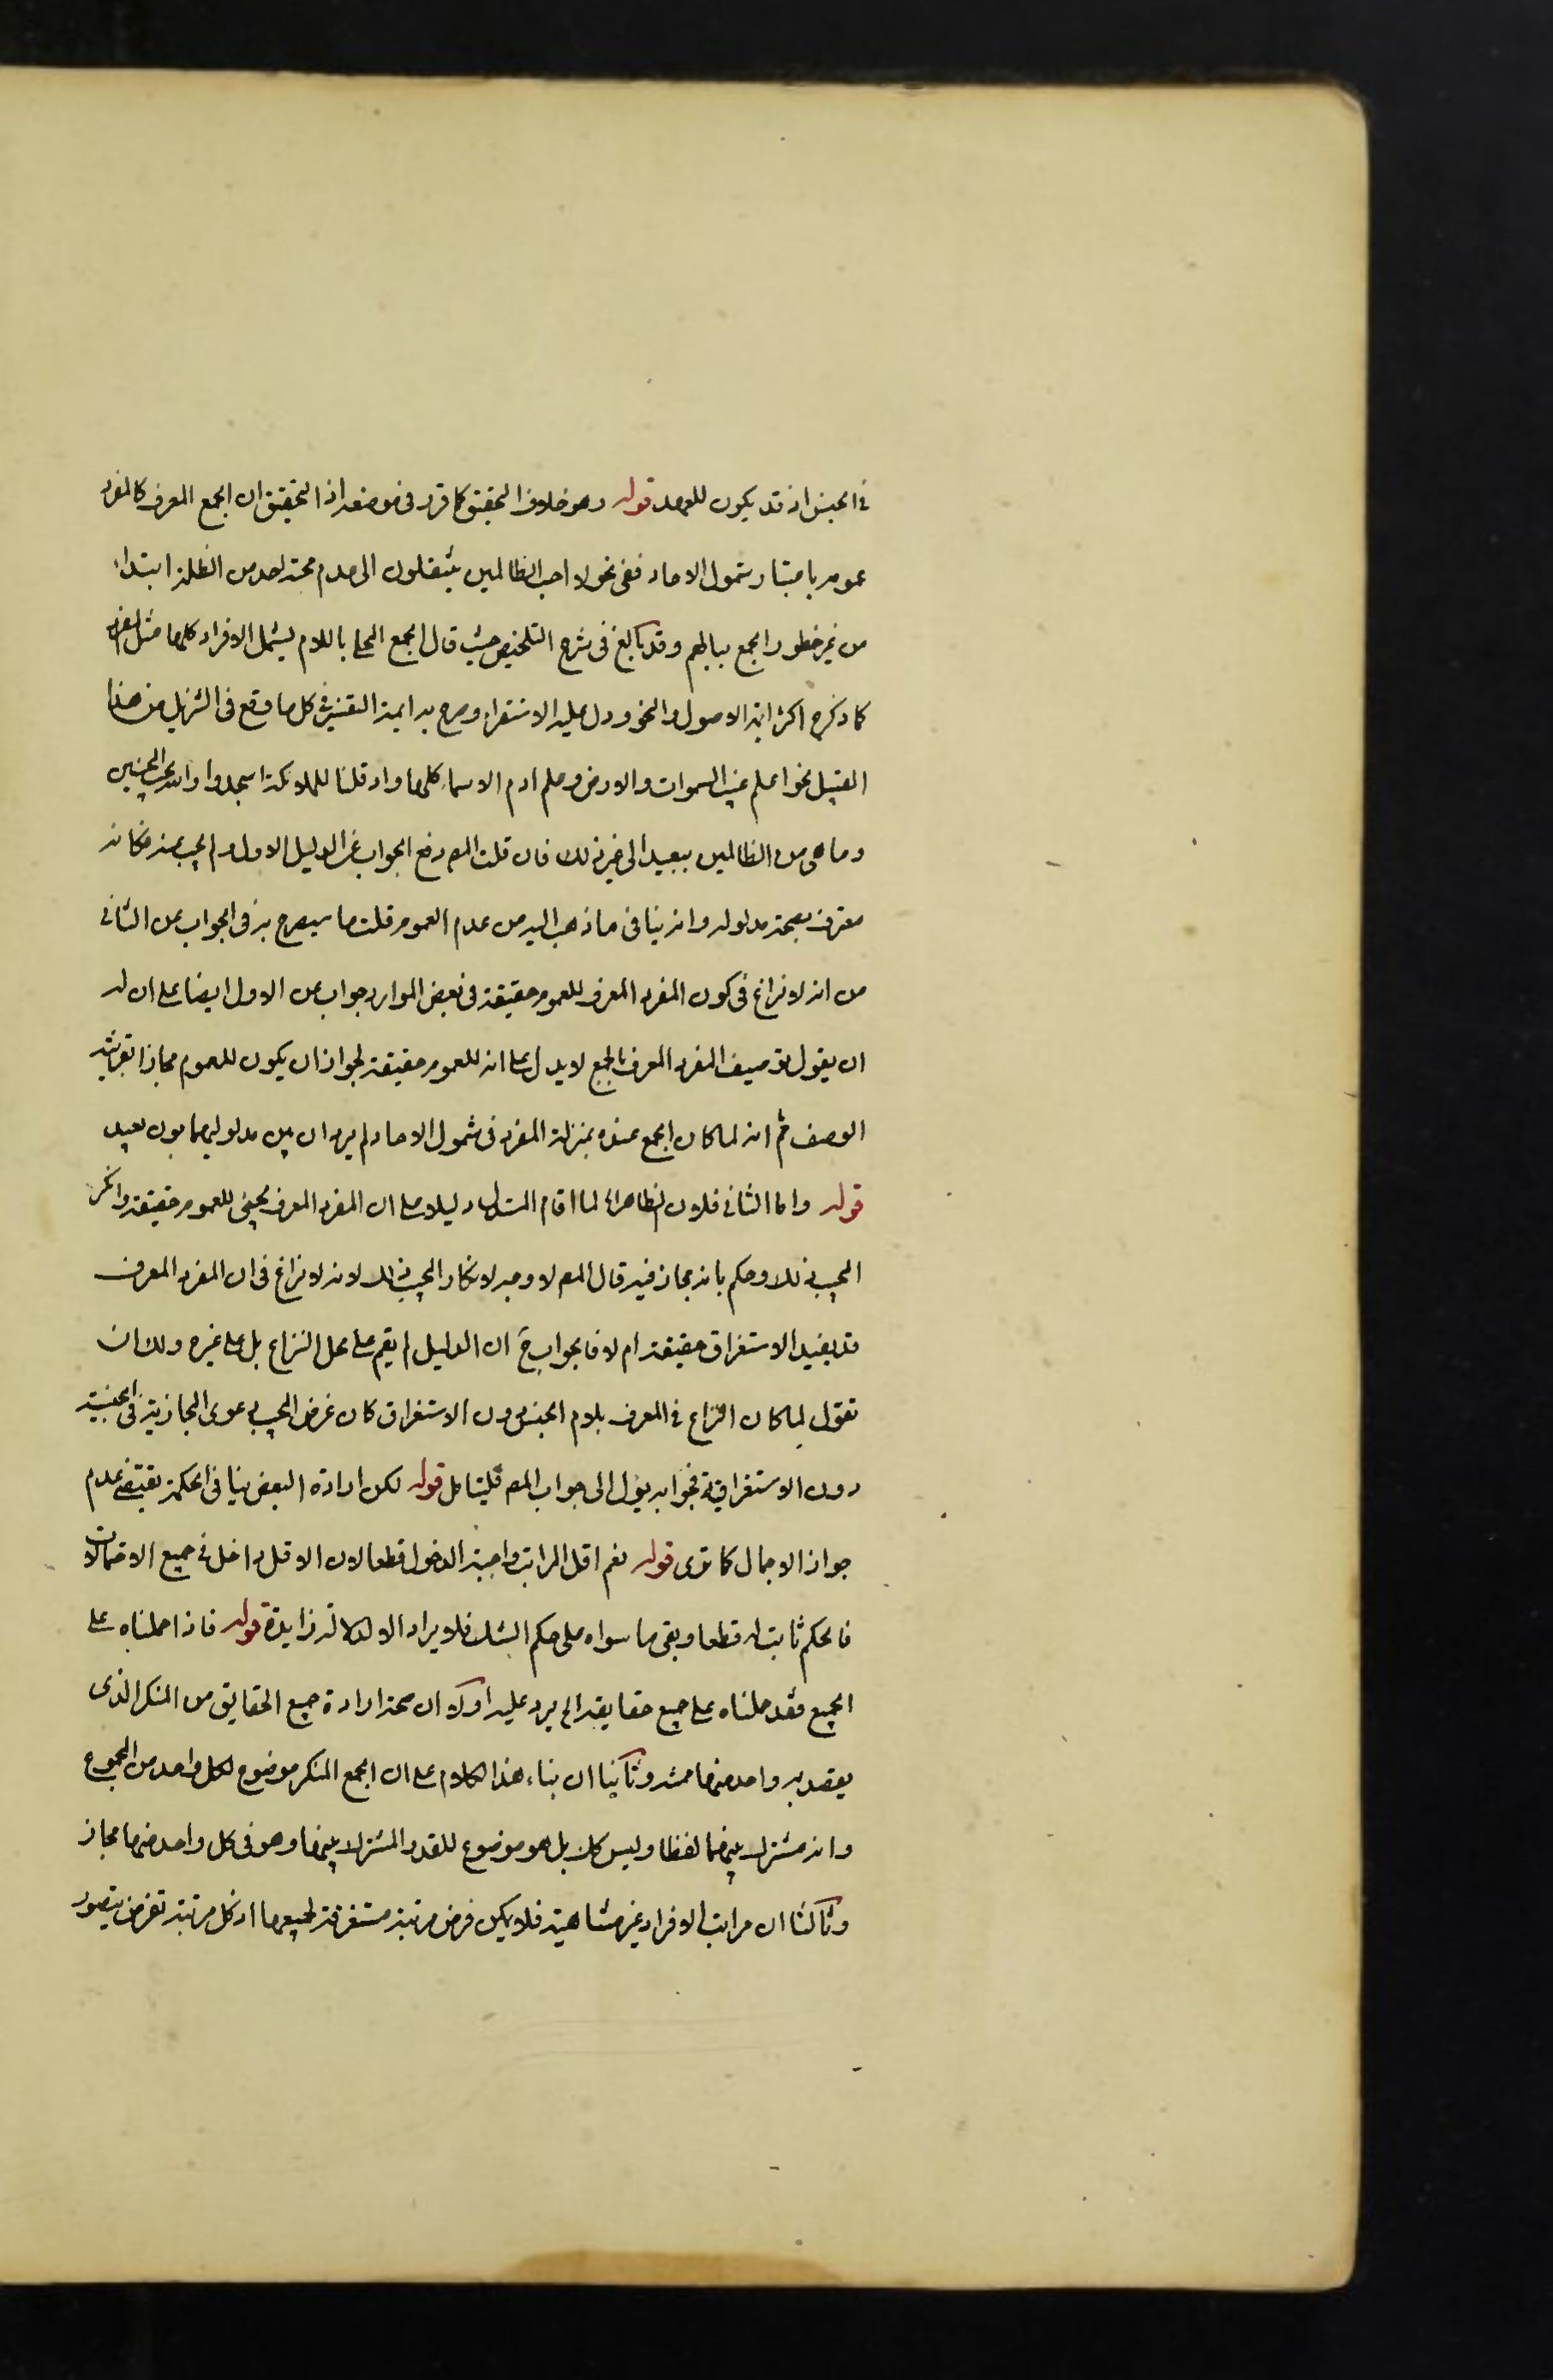 في الجنس اذ قد يكون للعهد قوله وهو خلاف التحقيق كما قرر في موضعه اذ التحقيق ان الجمع المعرف كالمفرد
عمومه باعتبار شمول الاحاد ففي نحو لا احب الظالمين ينتقلون الى عدم محبة احد من الظلمة ابتداء
من غير خطور الجمع ببالهم وقد بالغ في شرح التلخيص حيث قال الجمع المحلى باللام يشمل الافراد كلها مثل المفرد
كما ذكره اكثر ايمة الاصول والنحو ودل عليه الاستقراء وصرح به ايمة التفسير في كل ما وقع في التنزيل من هذا
القبيل نحو اعلم غيب السموات والارض وعلم ادم الاسماء كلها واذ قلنا للملائكة اسجدوا والله يحب المحسنين
وما هي من الظالمين ببعيد الى غير ذلك فان قلت المص دفع الجواب عن الدليل الاول ولم يجب عنه فكانه
معترف بصحة مدلوله وانه ينافي ما ذهب اليه من عدم العموم قلت ما سيصرح به في الجواب عن الثاني
من انه لا نزاع في كون المفرد المعرف للعموم حقيقة في بعض الموارد جواب عن الاول ايضا على ان له
ان يقول توصيف المفرد المعرف بالجمع لا يدل على انه للعموم حقيقة لجواز ان يكون للعموم مجازا بقرينة
الوصف ثم انه لما كان الجمع عنده بمنزلة المفرد في شمول الاحاد لم يرد ان بين مدلوليهما بون بعيد
قوله واما الثاني فلان الظاهر انه لما اقام المستدل دليلا على ان المفرد المعرف يجيئ للعموم حقيقة وانكر
المجيب ذلك وحكم بانه مجاز فيه قال المص لا وجه لانكار المجيب ذلك لانه لا نزاع في ان المفرد المعرف
قد يفيد الاستغراق حقيقة ام لا فالجواب ح ان الدليل لم يقم على محل النزاع بل على غيره ولك ان
تقول لما كان النزاع في المعرف بلام الجنس دون الاستغراق كان غرض المجيب دعوى المجازية في الجنسية
دون الاستغراقية فجوابه يؤل الى جواب المص فليتامل قوله لكن ارادة البعض ينافي الحكمة يقتضي عدم
جواز الاجمال كما ترى قوله نعم اقل المراتب واجبة الدخول قطعا لان الاقل داخل في جميع الاحتمالات
فالحكم ثابت له قطعا ويبقى ما سواه على حكم الشك فلا يراد الا لدلالة زايدة قوله فاذا حملناه على
الجميع فقد حملناه على جميع حقايقه الخ يرد عليه اولا ان صحة ارادة جميع الحقايق من المنكر الذي
يقصد به واحد منها ممنوعة وثانيا ان بناء هذا الكلام على ان الجمع المنكر موضوع لكل واحد من الجموع
وانه مشترك بينها لفظا وليس كك بل هو موضوع للقدر المشترك بينها وهو في كل واحد منها مجاز
وثالثا ان مراتب الافراد غير متناهية فلا يمكن فرض مرتبة مستغرقة لجميعها اذ كل مرتبة تفرض يتصور